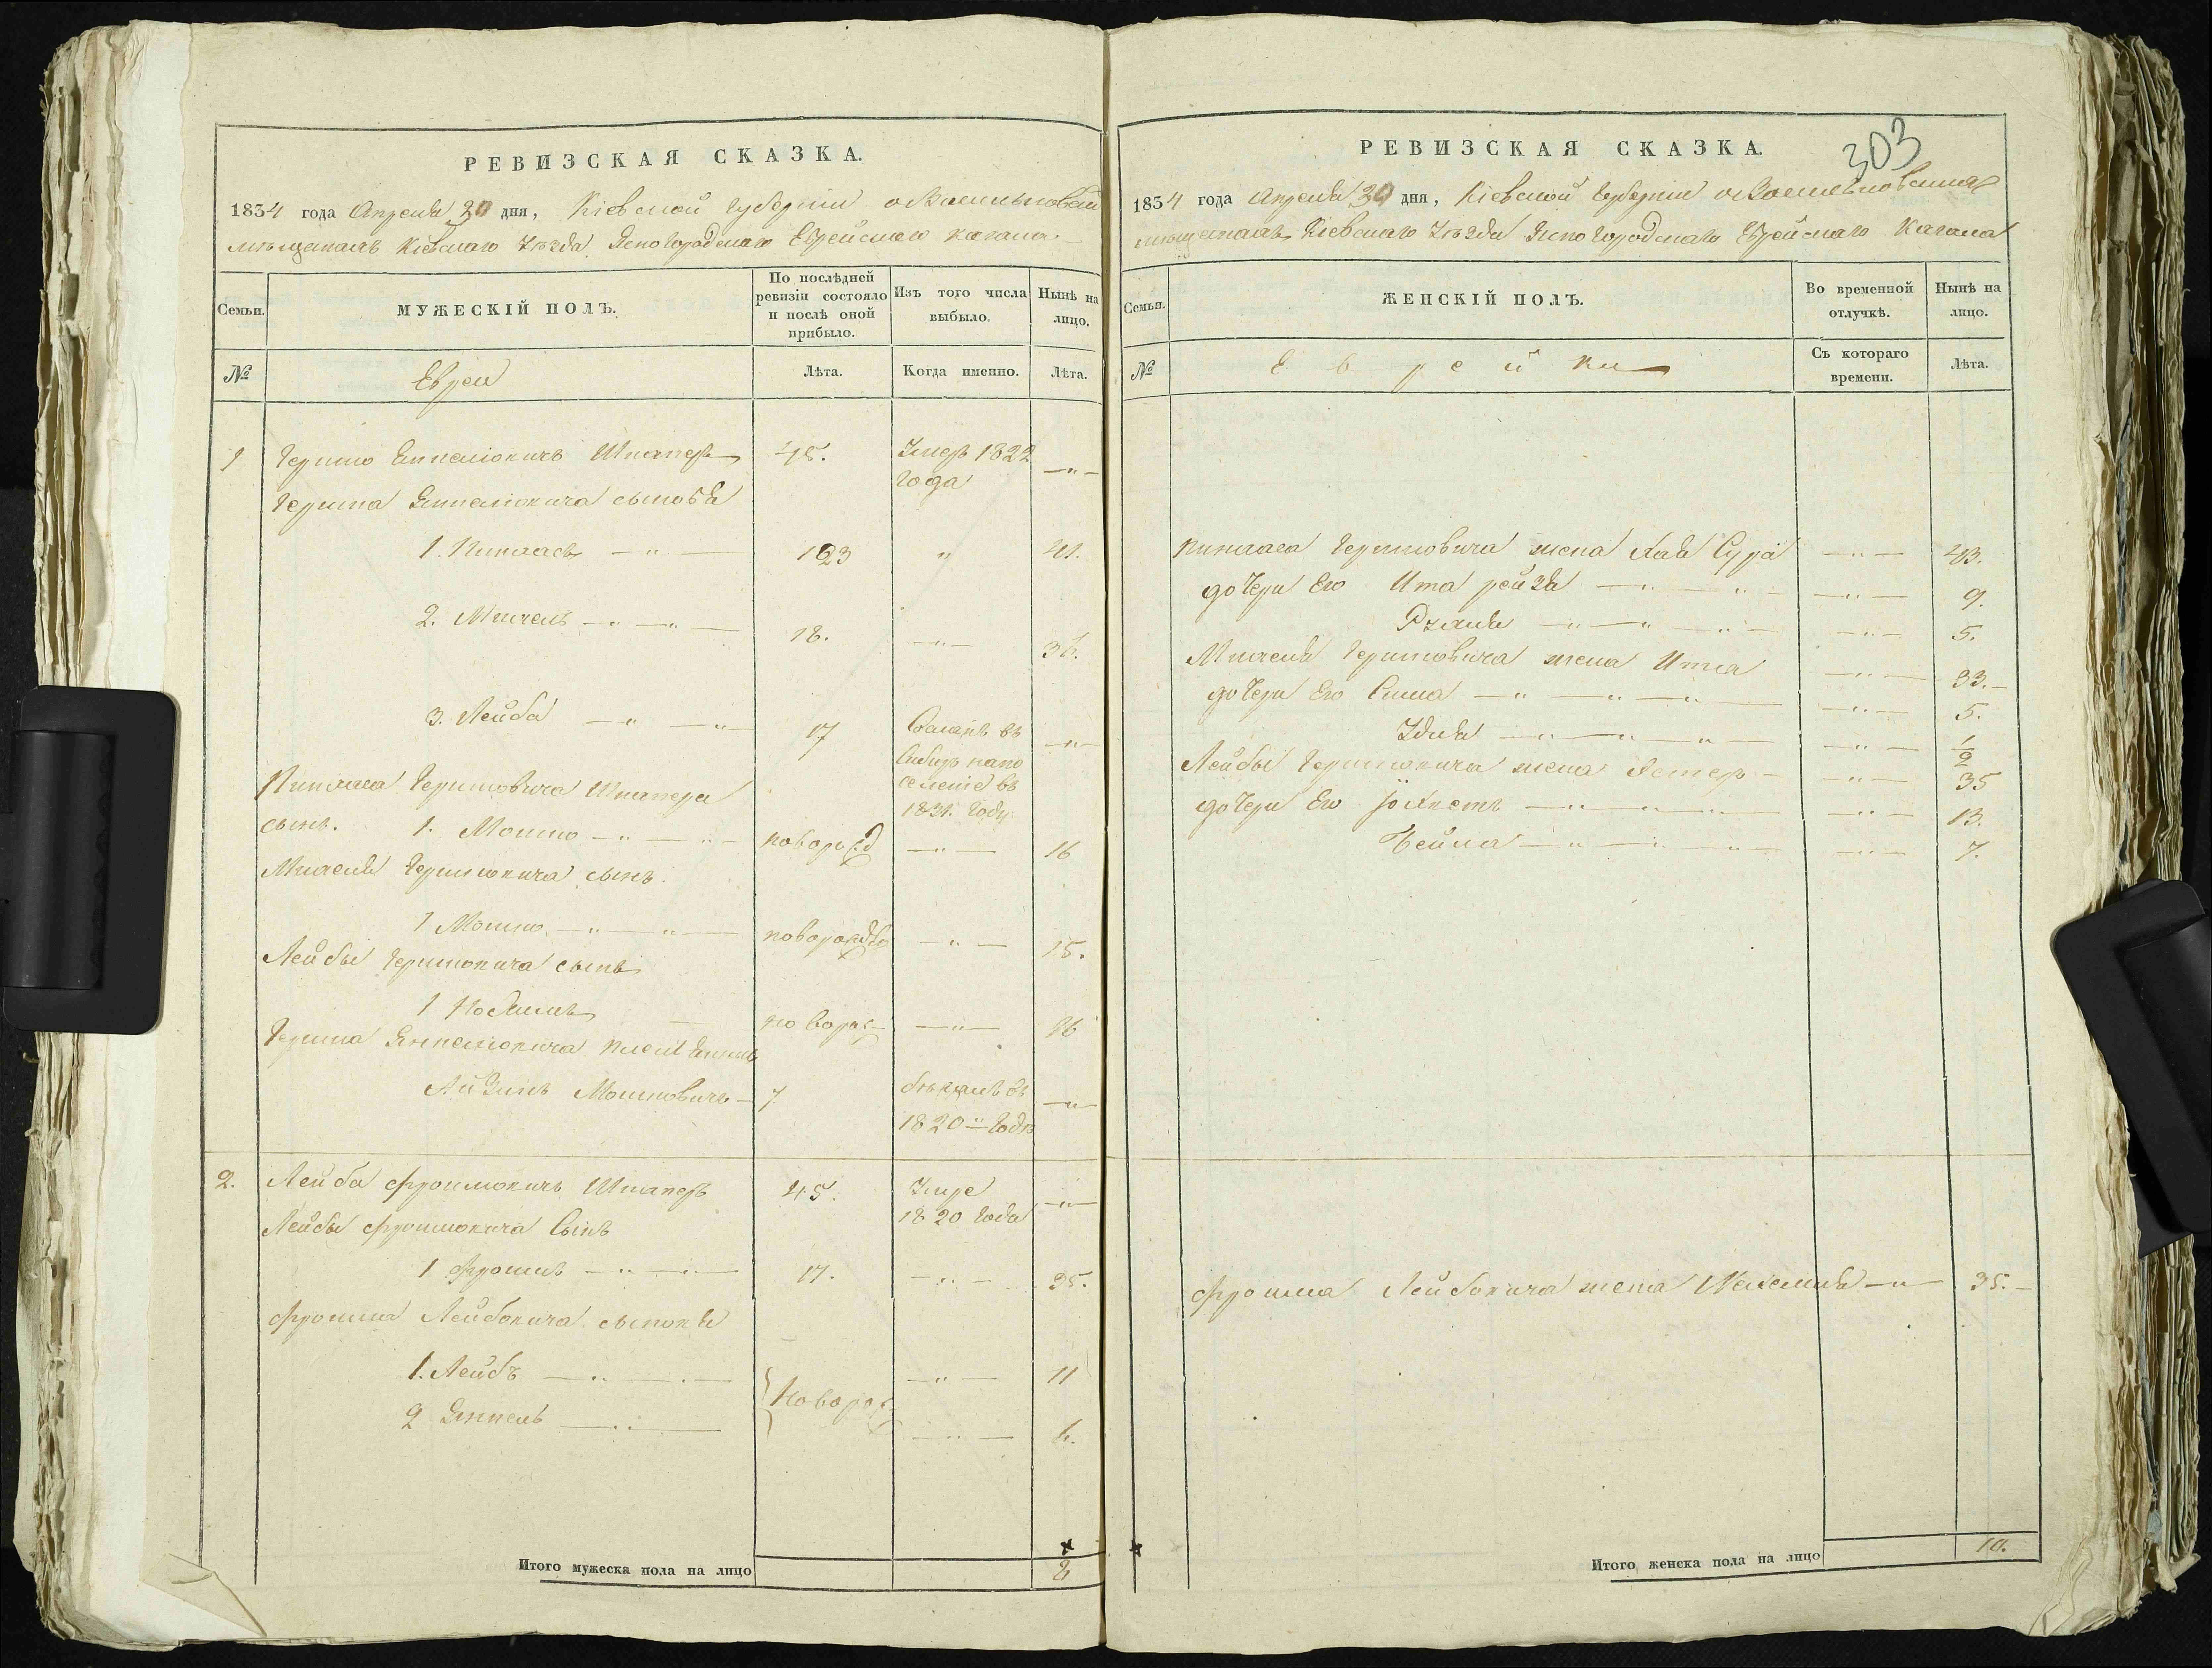 РЕВИЗСКАЯ СКАЗКА.
1834 года Апреля 30 дня, Кіевской Губерніи о
мѣщанахъ Кіевскаго Уѣзда Ясногородскаго Еврейскаго Кагала.
Семьи.
МУЖЕСКІЙ ПОЛЪ.
По послѣдней ревизіи состояло и послѣ оной прибыло.
Изъ того числа выбыло.
Нынѣ на лицо.
№
Евреи
Лѣта.
Когда именно.
Лѣта.
1 Гершко Янкелювичъ Шкаперъ 45. Умеръ 1822 —"—
года
Гершка Янкелювича сыновья
1. Пинхасъ —"— 23 " 41.
2. Михель —"—"— 18. —"— 36.
3. Лейба —"—"— 17 Сосланъ въ —"—
Сибирь на по
Пинхаса Гершковича Шкапера селеніе въ
1831. Году
сынъ. 1. Мошко —"—"— новорожд —"— 16
Михеля Гершковича сынъ.
1 Мошко —"—"— новорожд —"— 15.
Лейбы Гершковича сынъ
1 новорож —"— 16
Гершка Янкелювича племянникъ
Айзикъ Мошковичъ — 7 бѣжалъ въ —"—
1820 "— Году
2. Лейба Фроимовичъ Шкаперъ 45. Умре —"—
1820 Года
Лейбы Фроимовича Сынъ
1 Фроимъ —"—"— 17. —"— 35.
Фроима Лейбовича сыновья
1. Лейбъ —"—"— Новорож —"— 11
2 Янкель —"— —"— 6.
Итого мужеска пола на лицо 8
303
РЕВИЗСКАЯ СКАЗКА.
1834 года Апреля 30 дня, Кіевской Губерніи о
мѣщанахъ Кіевскаго Уѣзда Ясногородскаго Еврейскаго Кагала
Семьи.
ЖЕНСКІЙ ПОЛЪ.
Во временной отлучкѣ.
Нынѣ на лицо.
№
Еврейки
Съ котораго времени.
Лѣта.
Пинхаса Гершковича жена Хая Сура —"— 43.
дочери Его Ита рейзя —"—"— —"— 9.
—"—"—"— —"— 5.
Михеля Гершковича жена Итта —"— 33.—
дочери Его Сима —"—"—"— —"— 5.
—"—"—"— —"— 1/2
Лейбы Гершковича жена Эстер — —"— 35
дочери Его —"—"—"— —"— 13.
Чейма —"—"—"— —"— 7.
Фроима Лейбовича жена Нехама —"— 35.—
Итого женска пола на лицо 10.